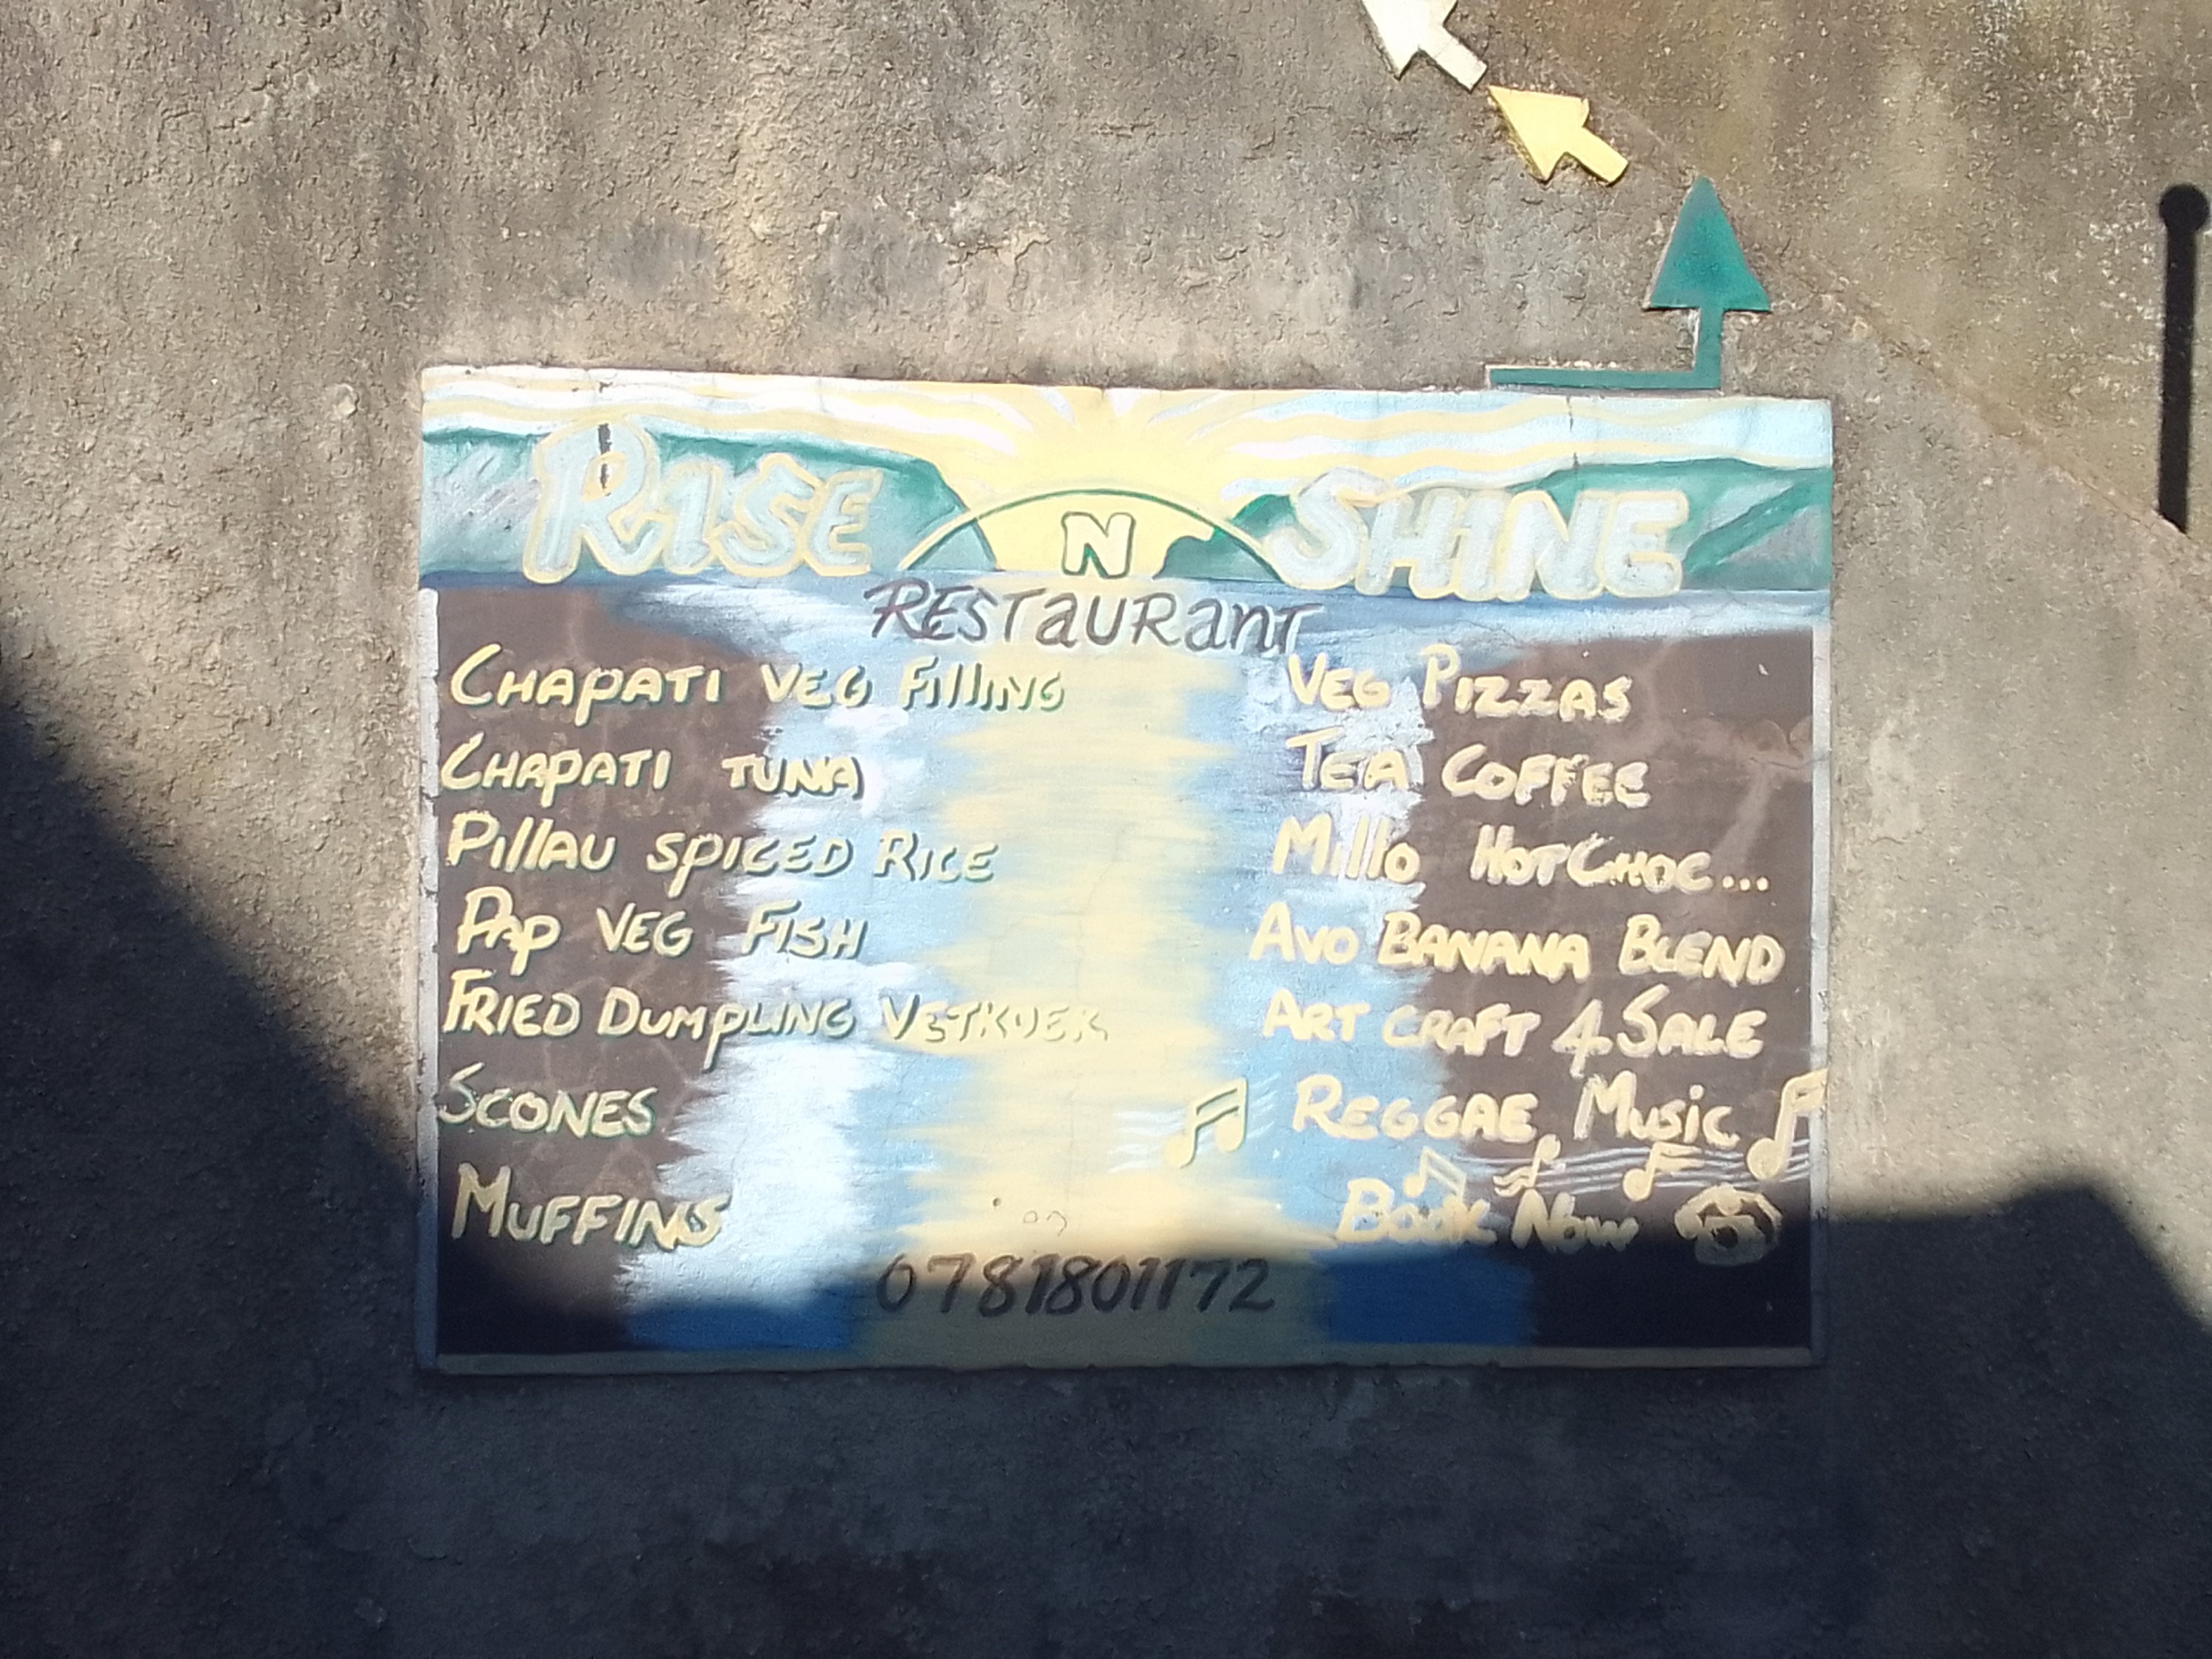 RISE N SHINE
RESTAURANT
CHAPATI VEG FILLING
CHAPATI TUNA
PILLAU SPICED RICE
PAP VEG FISH
FRIED DUMPLING VETKOEK
SCONES
MUFFINS
VEG PIZZAS
TEA COFFEE
MILLO HOTCHOC...
AVO BANANA BLEND
ART CRAFT 4 SALE
REGGAE MUSIC
BOOK NOW
0781801172